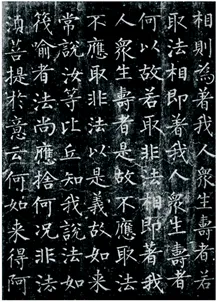 相則為著我人衆生壽者若
取法相即著我人衆生壽者
何以故若取非法相即著我
人衆生壽者是故不應取法
不應取非法以是義故如来
常說汝等比丘知我說法如
筏喻者法尚應捨何況非法
須菩提於意云何如来得阿